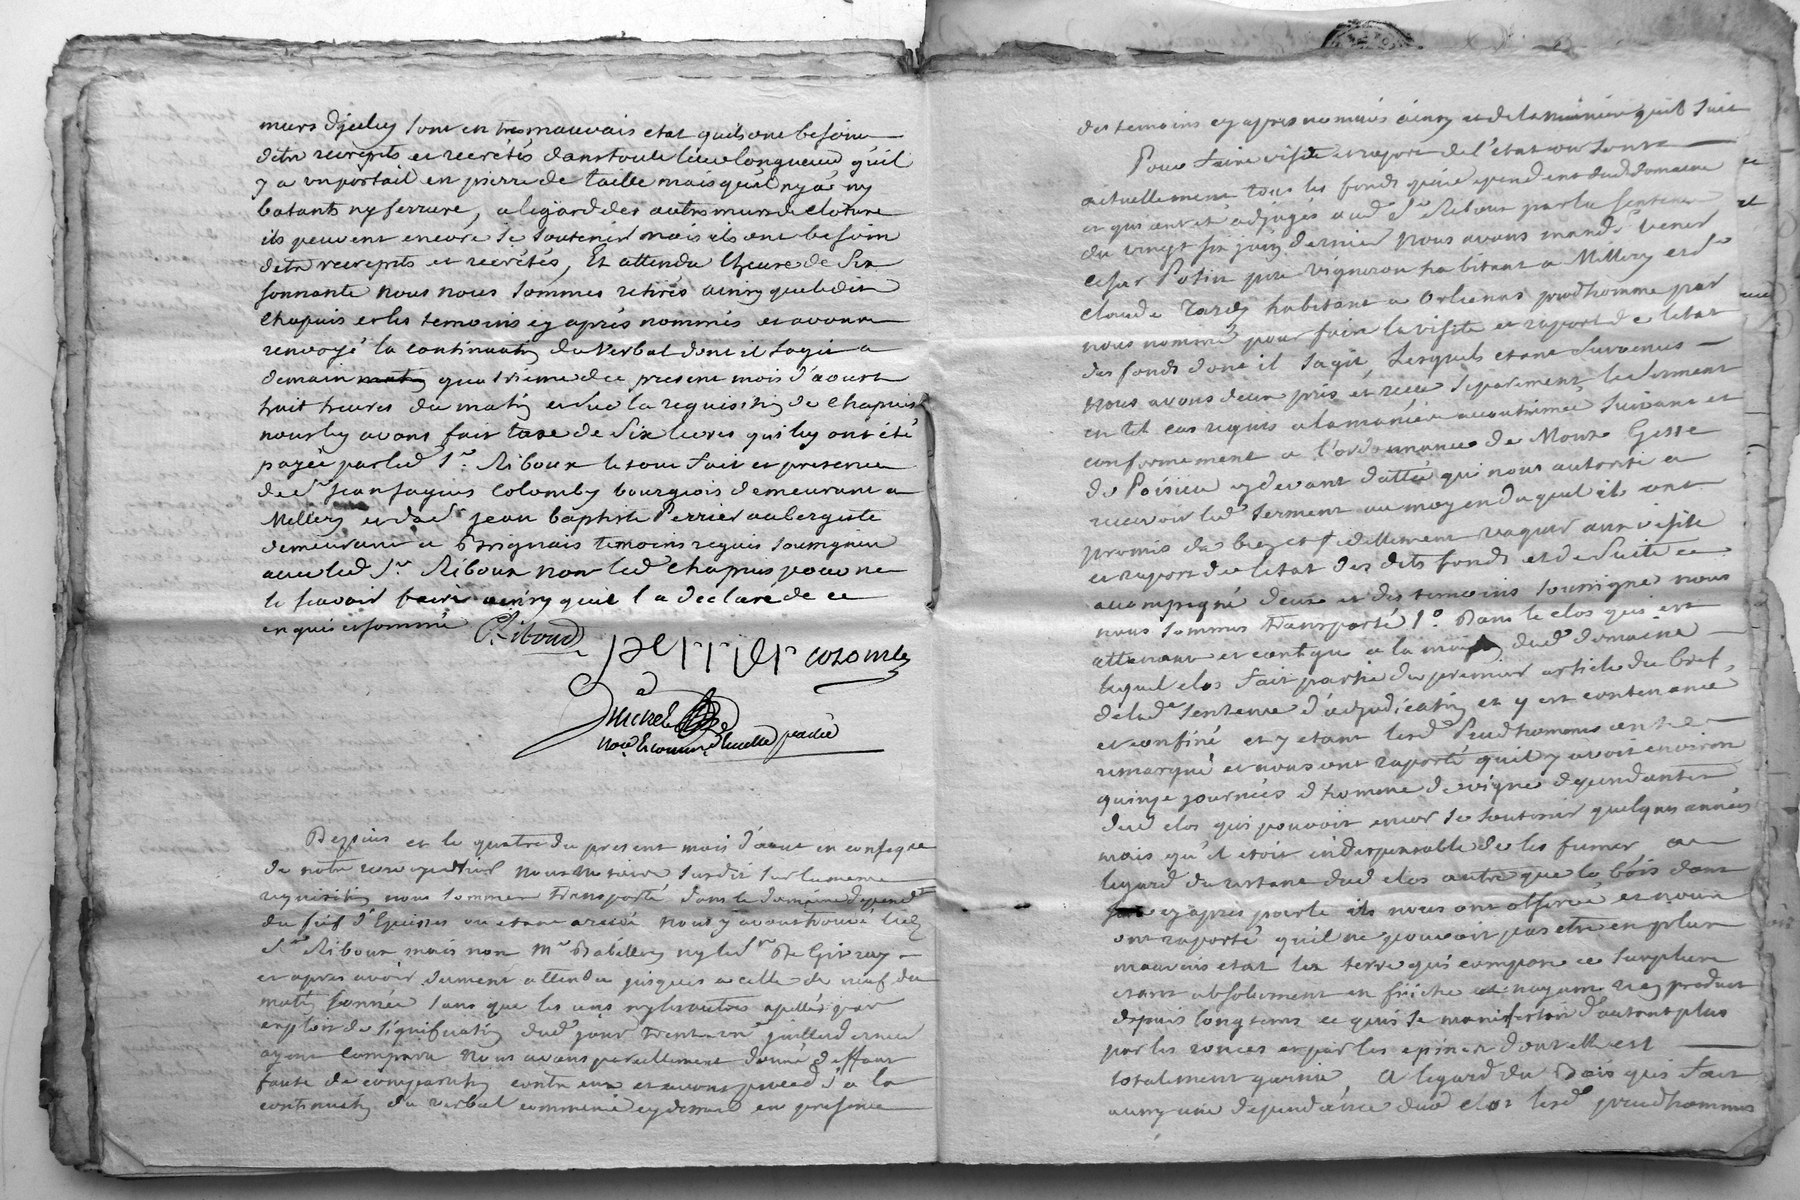 murs d'jceluy sont en tres mauvais etat quils ont besoin
detre recrepits et recrétés dans toute leur longueur quil
y a un portail en pierre de taille mais quil ny a ny
batants ny serrure, a legard des autres murs de cloture
ils peuvent encore se soutenir mais ils ont besoin
detre recrepits et recrétés, Et attendu lheure de six
sonnante nous nous sommes retirés ainsy que ledit
Chapuis et les temoins cy après nommés et avons
renvoyé la continuation du verbal dont il sagit a
demain quatrieme du present mois d'aoust
huit heures du matin et sur la requisition de Chapuis
nous luy avons fait taxe de six livres qui luy ont été
payée par led. Sr. Riboux le tout fait en presence
de Sr. Jean Jaques Colomby bourgeois demeurant a
Millery et de Sr. jean baptiste Perrier aubergiste
demeurant a Brignais temoins requis soussignés
avec led. Sr. Riboux non led. Chapuis pour ne
le scavoir faire ainsy quil l'a declaré de ce
enquis et sommé Riboud
perrier colomby
Michel
nore. Et comm.re
Depuis et le quatre du present mois d'aout en conseque
de notre renvoy nous notaire susdit sur la meme
requisition nous sommes transporté dans le domaine dépend.t
du fief d' ou etant arrivé nous y avons trouvé led.
Sr. Riboux mais non Mr. Babillon ny led. Sr. De
et apres avoir dument attendu jusques a celle de neuf du
matin sonnée sans que les uns ny les autres apellés par
exploit de signification dud. jour trente un juillet dernier
ayent comparu nous avons pareillement donné deffaut
faute de comparution contre eux et avons procedé a la
continuation du verbal commencé cy devant en presence
des temoins cy apres nommés ainsy et de la manière quil suit
Pour faire visite et raport de l'état ou sont
actuellement tous les fonds qui dependent dud. domaine
et qui ont été adjugés aud. Sr. Riboux par la sentence
du vingt six juin dernier nous avons mandé venir
Cesar Potin pere vigneron habitant a Millery et Sr.
claude Tardy habitant a Orlienas prudhomme par
nous nommé pour faire la visite et raport de letat
des fonds dont il sagit, Lesquels etant survenus
nous avons deux pris et receu separement le serment
en tel cas requis a la manière accoutumée suivant et
conformement a l'ordonnance de Monsr. Gesse
de Poisieu cy devant dattée qui nous autorise a
recevoir led. serment au moyen duquel ils ont
promis de bien et fidellement vaquer aux visite
et raport de letat des dits fonds et de suite
accompagné deux et des temoins soussignés nous
nous sommes transporté 1o. Dans le clos qui est
attenant et contigu a la maison dud. domaine
lequel clos fait partie du premier article du bref
de lad. sentence d'adjudication et y est contenance
et confiné et y etant lesd. Prudhommes ont
remarqué et nous ont raporté quil y avoit environ
quinze journées d'homme de vigne dependantes
dud. clos qui pouvoit encor se soutenir quelques années
mais qu'il etoit indispensable de les fumer a
legard du restant dud. clos autre que le bois dont
cy apres parlé ils nous ont observé et nous
ont raporté qu'il ne pouvoit pas etre en plus
mauvais etat la terre qui compose ce surplus
etant absolument en friche et nayant rien produit
depuis longtems ce qui se manifestoit d'autant plus
par les ronces et par les epines dont elle est
totalement garnie, A legard du Bois qui fait
aussy une dependance dud. clos lesd. prudhommes